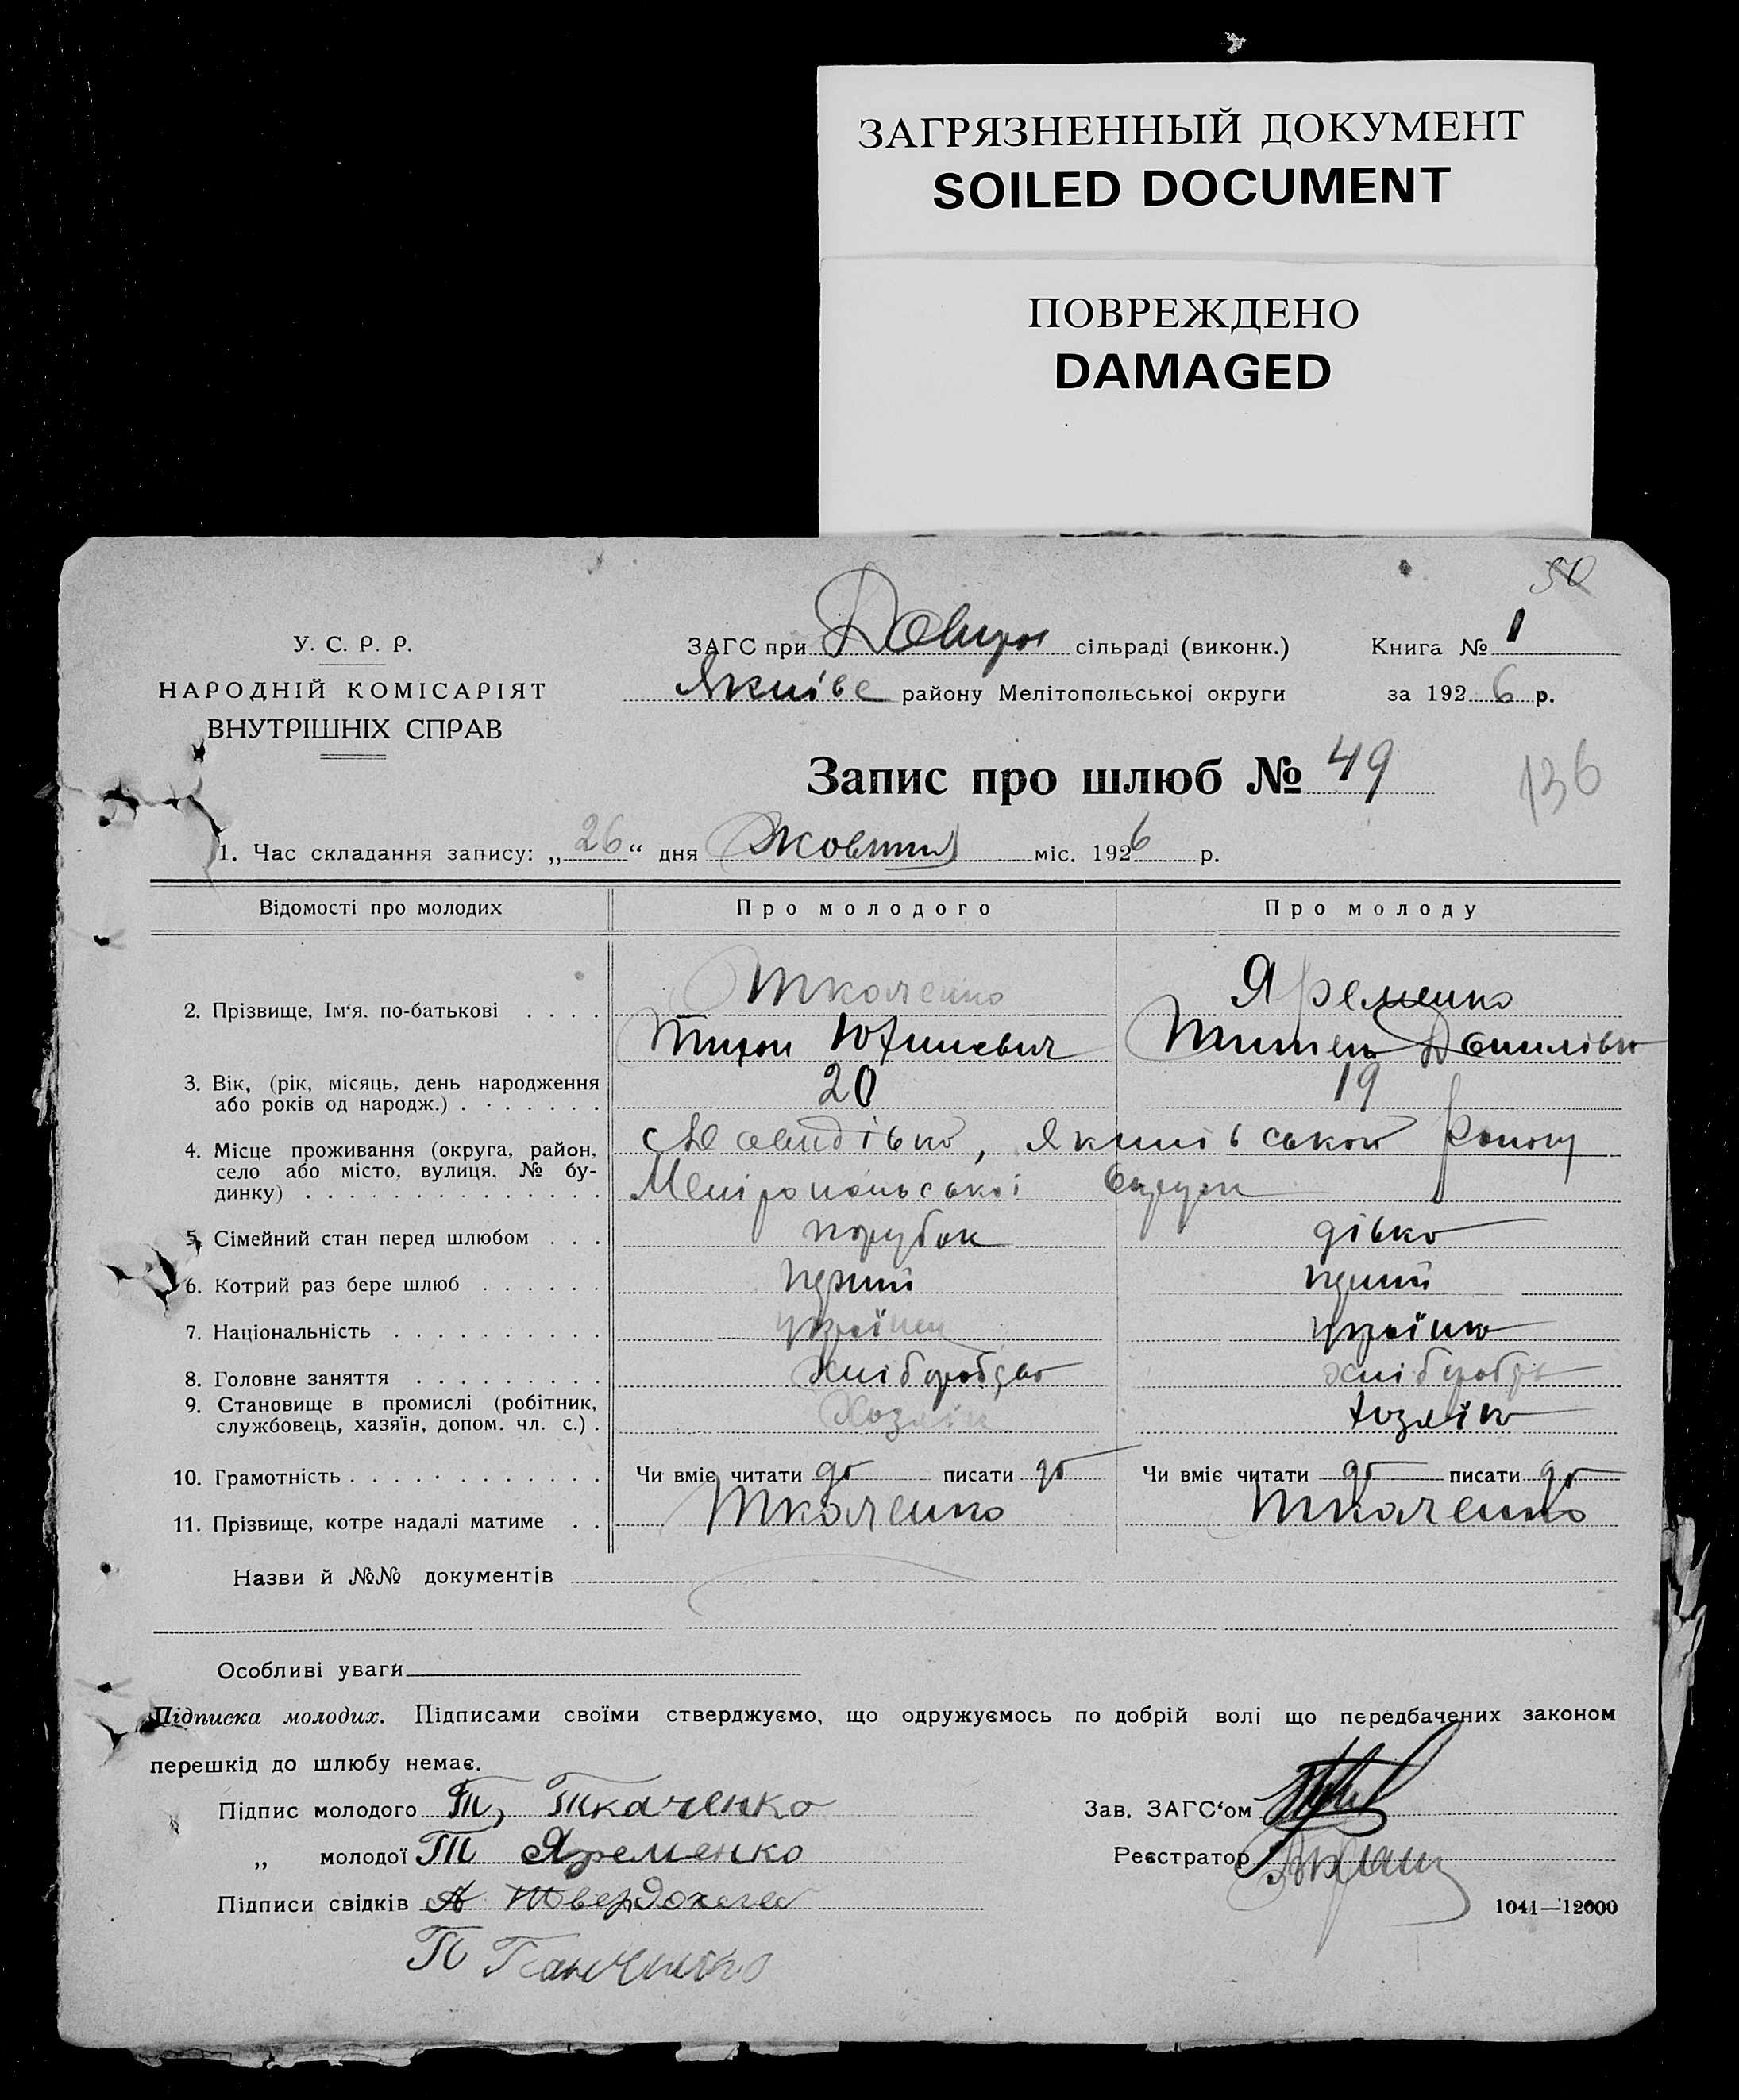 ЗАГРЯЗНЕННЫЙ ДОКУМЕНТ
SOILED DOCUMENT
ПОВРЕЖДЕНО
DAMAGED
50
У. С. Р. Р.
НАРОДНІЙ КОМІСАРІЯТ
ВНУТРІШНІХ СПРАВ
ЗАГС при сільраді (виконк.)
району Мелітопольської округи
Книга № 1
за 1926 р.
Запис про шлюб № 49
136
1. Час складання запису: „26“ дня Жовтня міс. 1926 р.
Відомості про молодих Про молодого Про молоду
Ткаченко Яременко
2. Прізвище, Ім‘я. по-батькові . . . .
Тихон Юхимович Данилівн
3. Вік, (рік, місяць, день народження 20 19
або років од народж.) . . . . . . .
4. Місце проживання (округа, район, Якимівської Району
село або місто, вулиця, № бу-
динку) . . . . . . . . . . . . . . Мелітопольської Округи
5. Сімейний стан перед шлюбом . . . парубок дівка
6. Котрий раз бере шлюб . . . . . . перший перший
7. Національність . . . . . . . . . . українец українка
8. Головне заняття . . . . . . . . . хліборобство хлібороб
9. Становище в промислі (робітник, Хозяїн хозяїн
службовець, хазяїн, допом. чл. с.) .
10. Грамотність . . . . . . . . . . . . Чи вміє читати да писати да Чи вміє читати да писати да
11. Прізвище, котре надалі матиме . . Ткаченко Ткаченко
Назви й №№ документів
Особливі уваги
Підписка молодих. Підписами своїми стверджуємо, що одружуємось по добрій волі що передбачених законом
перешкід до шлюбу немає.
Підпис молодого Т, Ткаченко Зав. ЗАГС‘ом
„ молодої Т Яременко Реєстратор
Підписи свідків А Твердохлеб
1041—12000
П